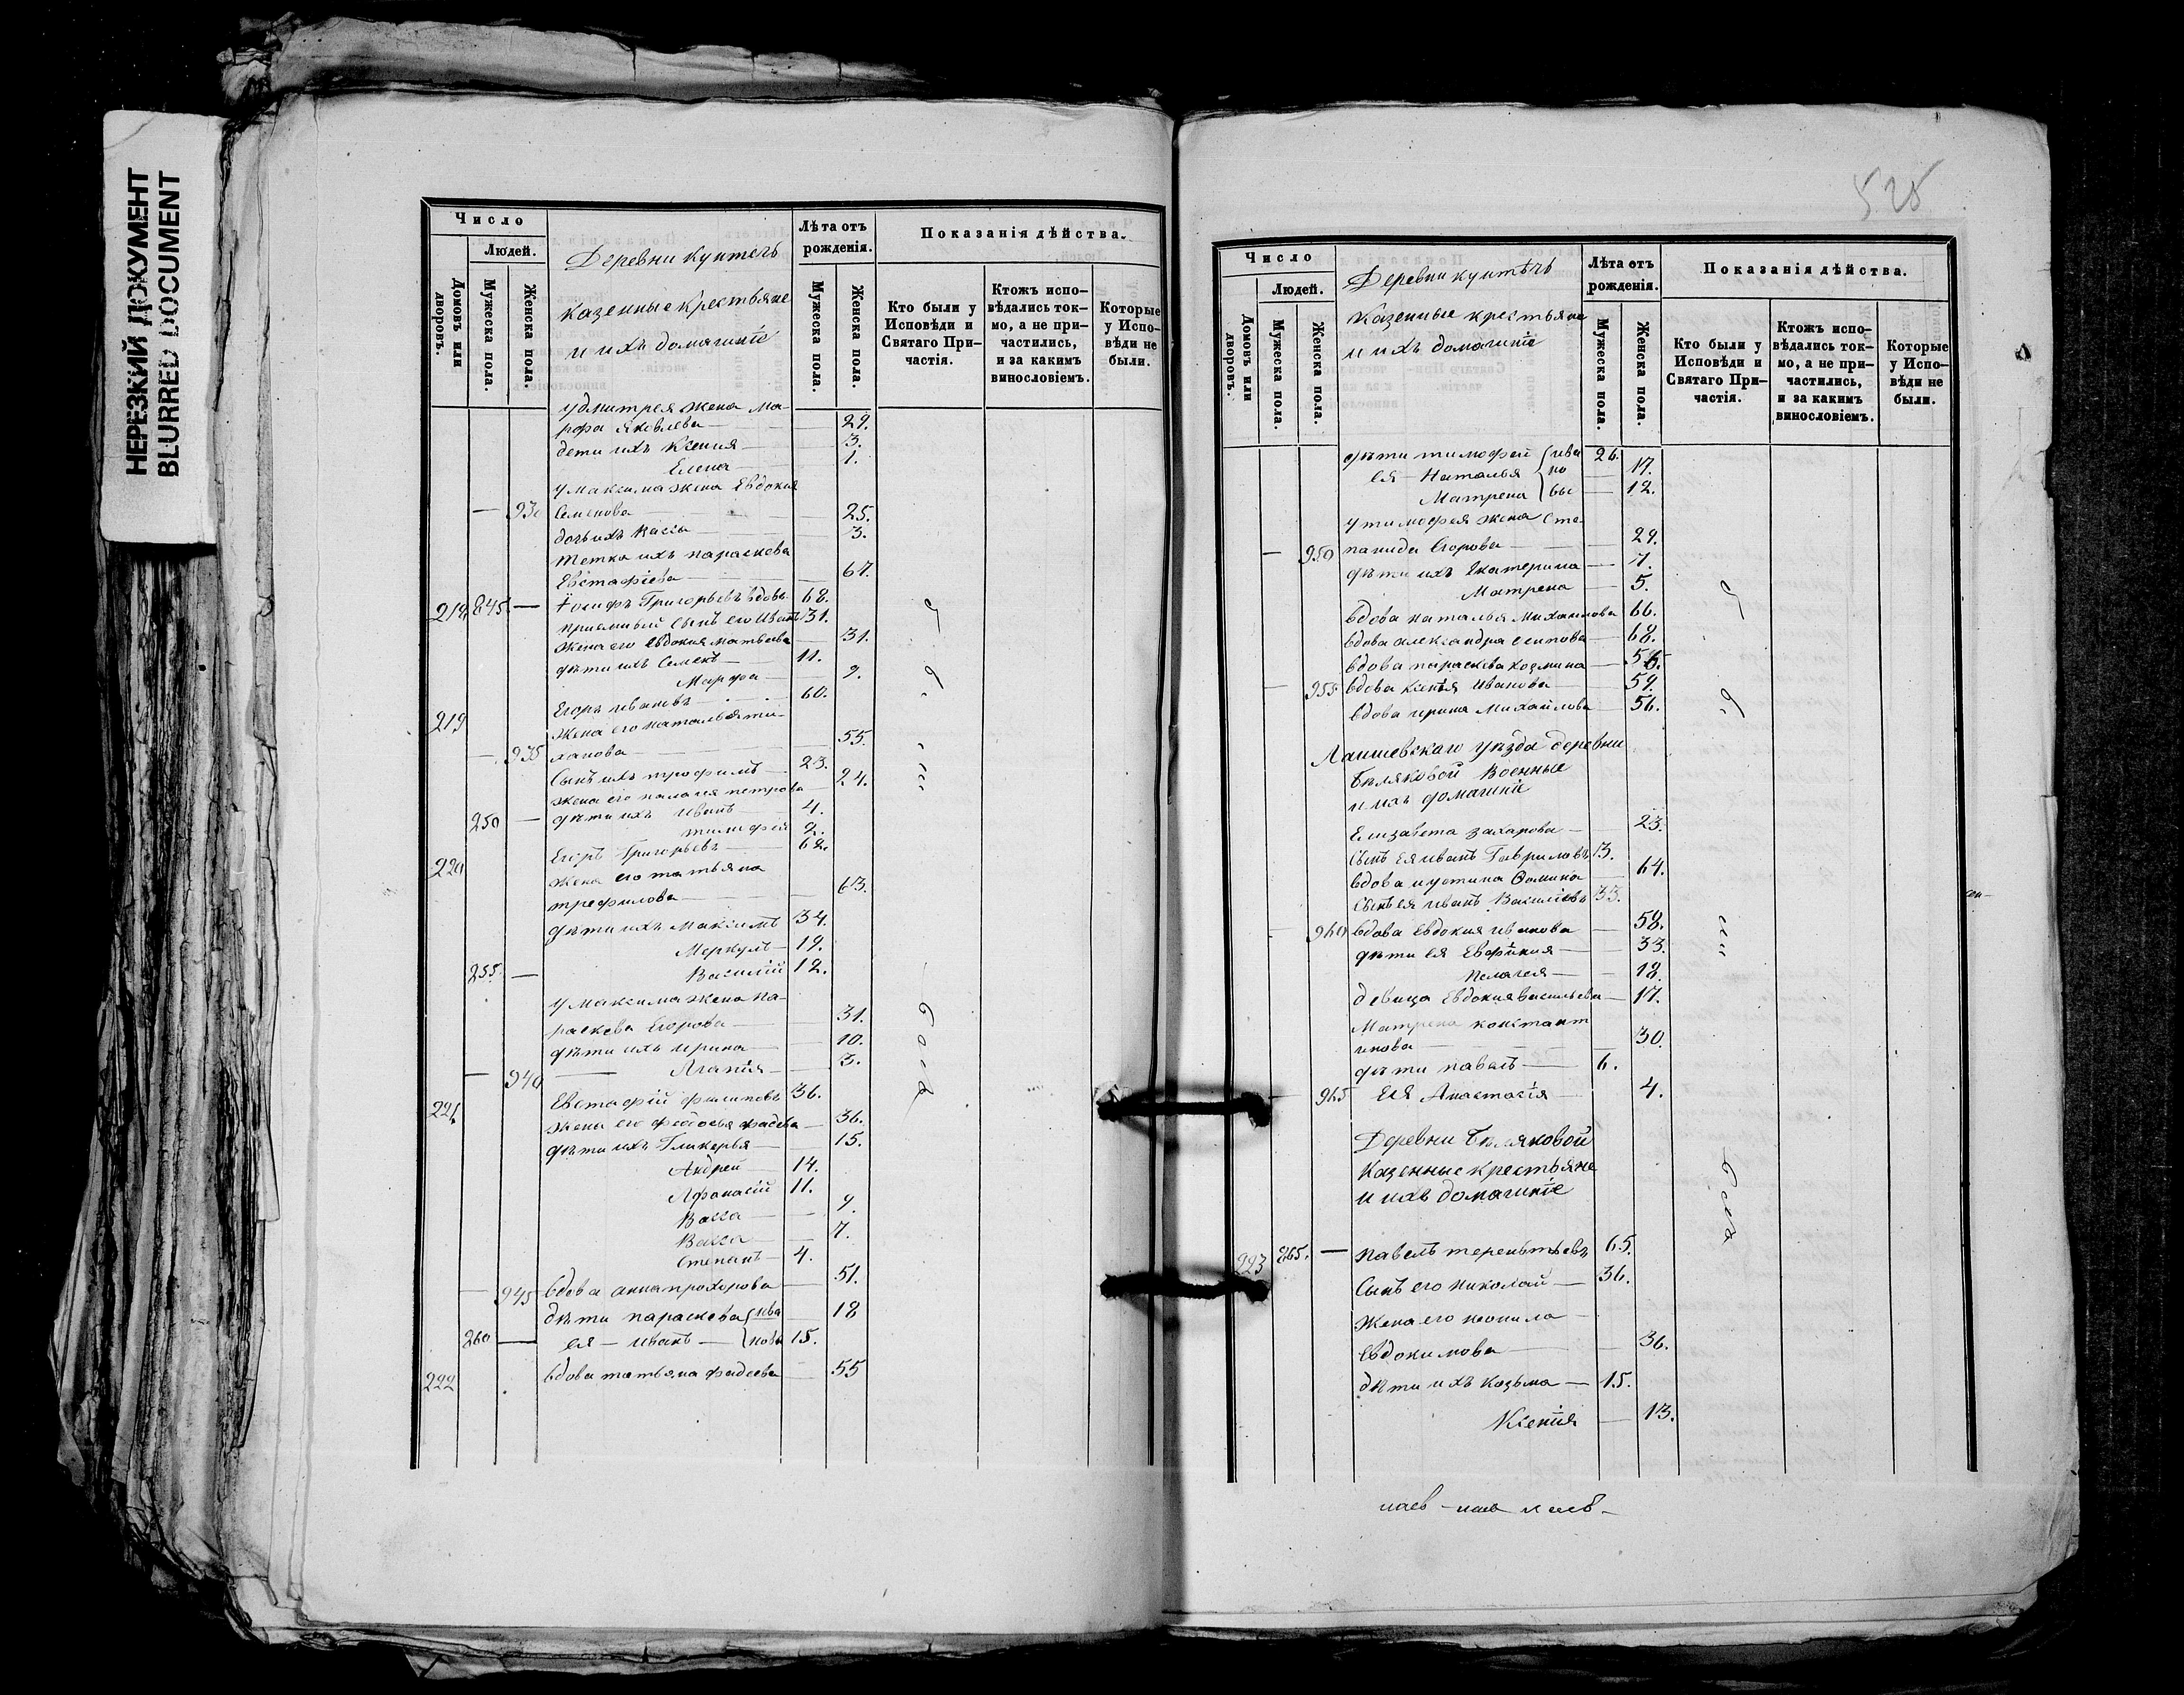 НЕРЕЗКИЙ ДОКУМЕНТ
BLURRED DOCUMENT
Число
Людей.
Домовъ или дворовъ.
Мужеска пола.
Женска пола.
Деревни куитечь
казенные крестьяне
и ихъ домашніе
Лѣта отъ рожденія.
Мужеска пола.
Женска пола.
Показанія дѣйства.
Кто были у Исповѣди и Святаго Причастія.
Ктожъ исповѣдались токмо, а не причастились, и за какимъ винословіемъ.
Которые у Исповѣди не были.
у дмитрея жена Ма-
рфа яковлева — 29.
дети ихъ Ксения — 3.
Елена — 1.
у максима жена Евдокия
— 930 Семенова — 25.
дочь ихъ Васса — 3.
тетка ихъ параскева
Евстафіева — 67.
218 845 — Іосифъ Григорьевъ вдовъ 68.
приемный сынъ его Иванъ 31.
жена его Евдокия матвеева — 31.
дѣти ихъ Семенъ — 11.
Марфа — 9.
219 Егоръ ивановъ — 60.
жена его наталья сти-
— 935 ханова — 55.
Сынъ ихъ трофимъ — 23.
жена его палагея петрова — 24.
250 — дѣти ихъ иванъ — 4.
тимофей 2.
220 Егоръ Григорьевъ — 62.
жена его татьяна
трефилова — 63.
дѣти ихъ Максимъ 34.
Меркулъ — 19.
255. — Василій 12.
у Максима жена па-
раскева Егорова — 31.
дѣти ихъ ирина — 10.
— 940 — Агапія — 3.
221 Евстафій филиповъ 36.
жена его федосья фадеева — 36.
дѣти ихъ Гликерья — 15.
Андрей 14.
Афанасій 11.
Васса — 9.
Васса — 7.
Степанъ — 4.
— 945 вдова анна прохорова — 51.
дѣти параскева { ива — 18
260 — ея — иванъ — { новы 15.
222 вдова татьяна фадеева — 55
б
ы
ли
были
525
Число
Людей.
Домовъ или дворовъ.
Мужеска пола.
Женска пола.
Деревни куитѣчь
Казенные крестьяне
и ихъ домашніе
Лѣта отъ рожденія.
Мужеска пола.
Женска пола.
Показанія дѣйства.
Кто были у Исповѣди и Святаго Причастія.
Ктожъ исповѣдались токмо, а не причастились, и за какимъ винословіемъ.
Которые у Исповѣди не были.
дѣти тимофей { ива 26.
ея — Наталья { но 17.
Матрена { вы — 12.
у тимофея жена Сте-
— 950 панида Егорова — 29.
дѣти ихъ Екатерина — 7.
Матрена — 5.
вдова наталья Михаилова 66.
вдова александра — 68.
вдова параскева козмина — 56.
— 955 вдова ксенія Иванова — 59.
вдова ирина Михайлова 56.
Лаишевскаго уѣзда деревни
Бѣляковой Военные
и ихъ домашніе
Елизавета захарова — 23.
Сынъ ея иванъ Гавриловъ 13.
вдова иустина Фомина — 64.
Сынъ ея иванъ Василіевъ 33.
— 960 вдова Евдокия иванова — 58.
дѣти ея Евфимия — 33.
Пелагея — 18.
девица Евдокия васильева — 17.
Матрена констант
инова — 30.
дѣти павелъ — 6.
965 Ея Анастасія — 4.
Деревни Бѣляковой
Казенные крестьяне
и ихъ домашніе
223 865. — павелъ терентьевъ 65.
Сынъ его николай — 36.
жена его неонила —
Евдокимова — 36.
дѣти ихъ козьма — 15.
Ксенія — 13.